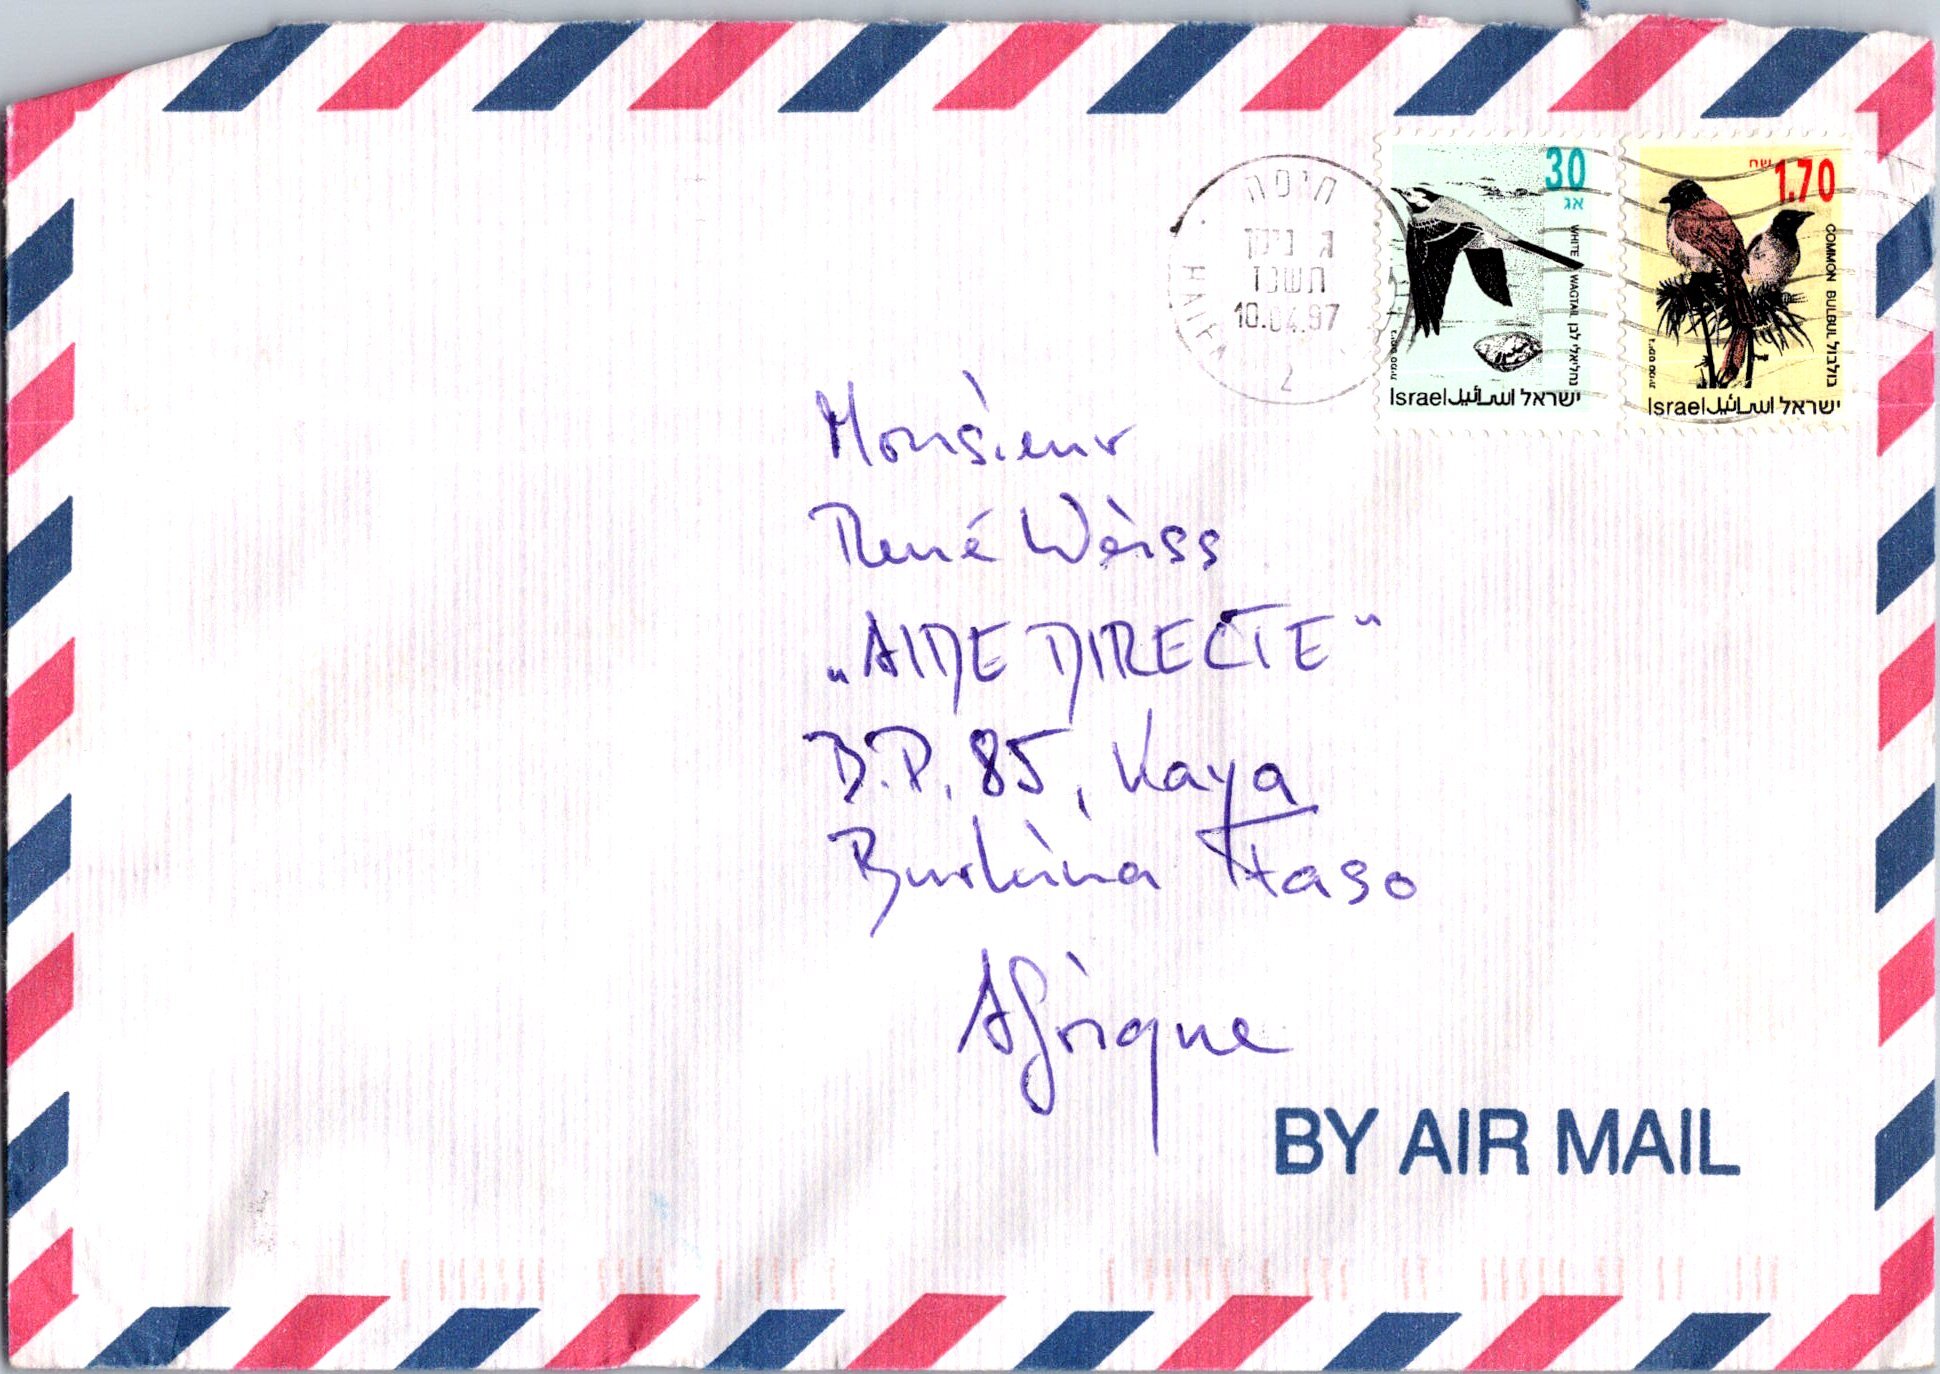 חיפה
ג ניסן
תשנז
10.04.97
HAIFA
2
30
אג
WHITE WAGTAIL נחליאלי לבן
Israel اسرائيل ישראל
שח 1.70
COMMON BULBUL בולבול
Israel اسرائيل ישראל
Monsieur
René Weiss
„AIDE DIRECTE“
B.P. 85, Kaya
Burkina Faso
Afrique
BY AIR MAIL